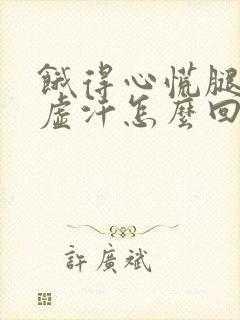 餓得心慌腿
虛汗怎麼回
許廣斌